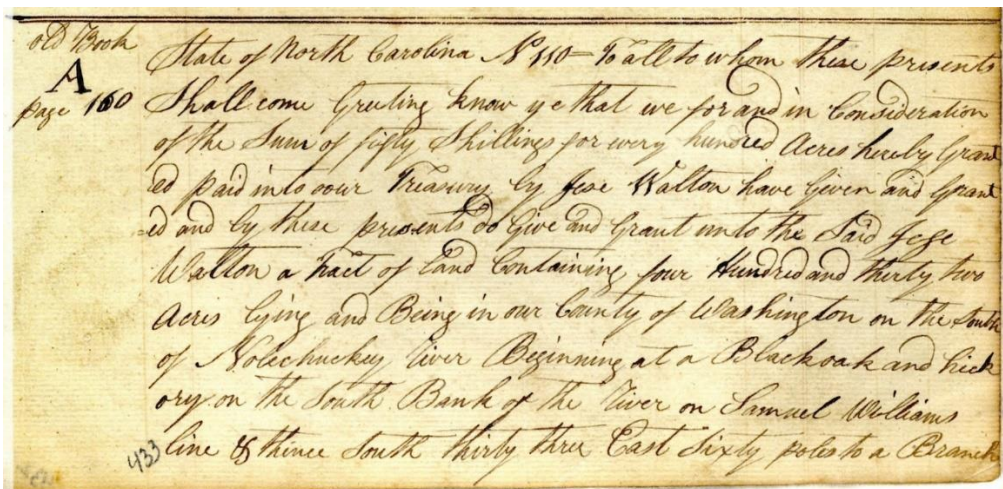 old Book
A
page 160
State of North Carolina No 110 - To all to whom these presents
Shall come Greeting know ye that we for and in Consideration
of the Sum of fifty Shillings for every hundred Acres hereby Grant
ed paid into our Treasury by Jese Walton have Given and Grant
=ed and by these presents do Give and Grant unto the Said Jese
Walton a Tract of Land Containing four Hundred and thirty two
Acres lying and Being in our County of Washington on the South
of Nolechuckey River Beginning at a Blackoak and hick
ory on the South Bank of the River on Samuel Williams
line & thence South thirty three East Sixty poles to a Branch
433